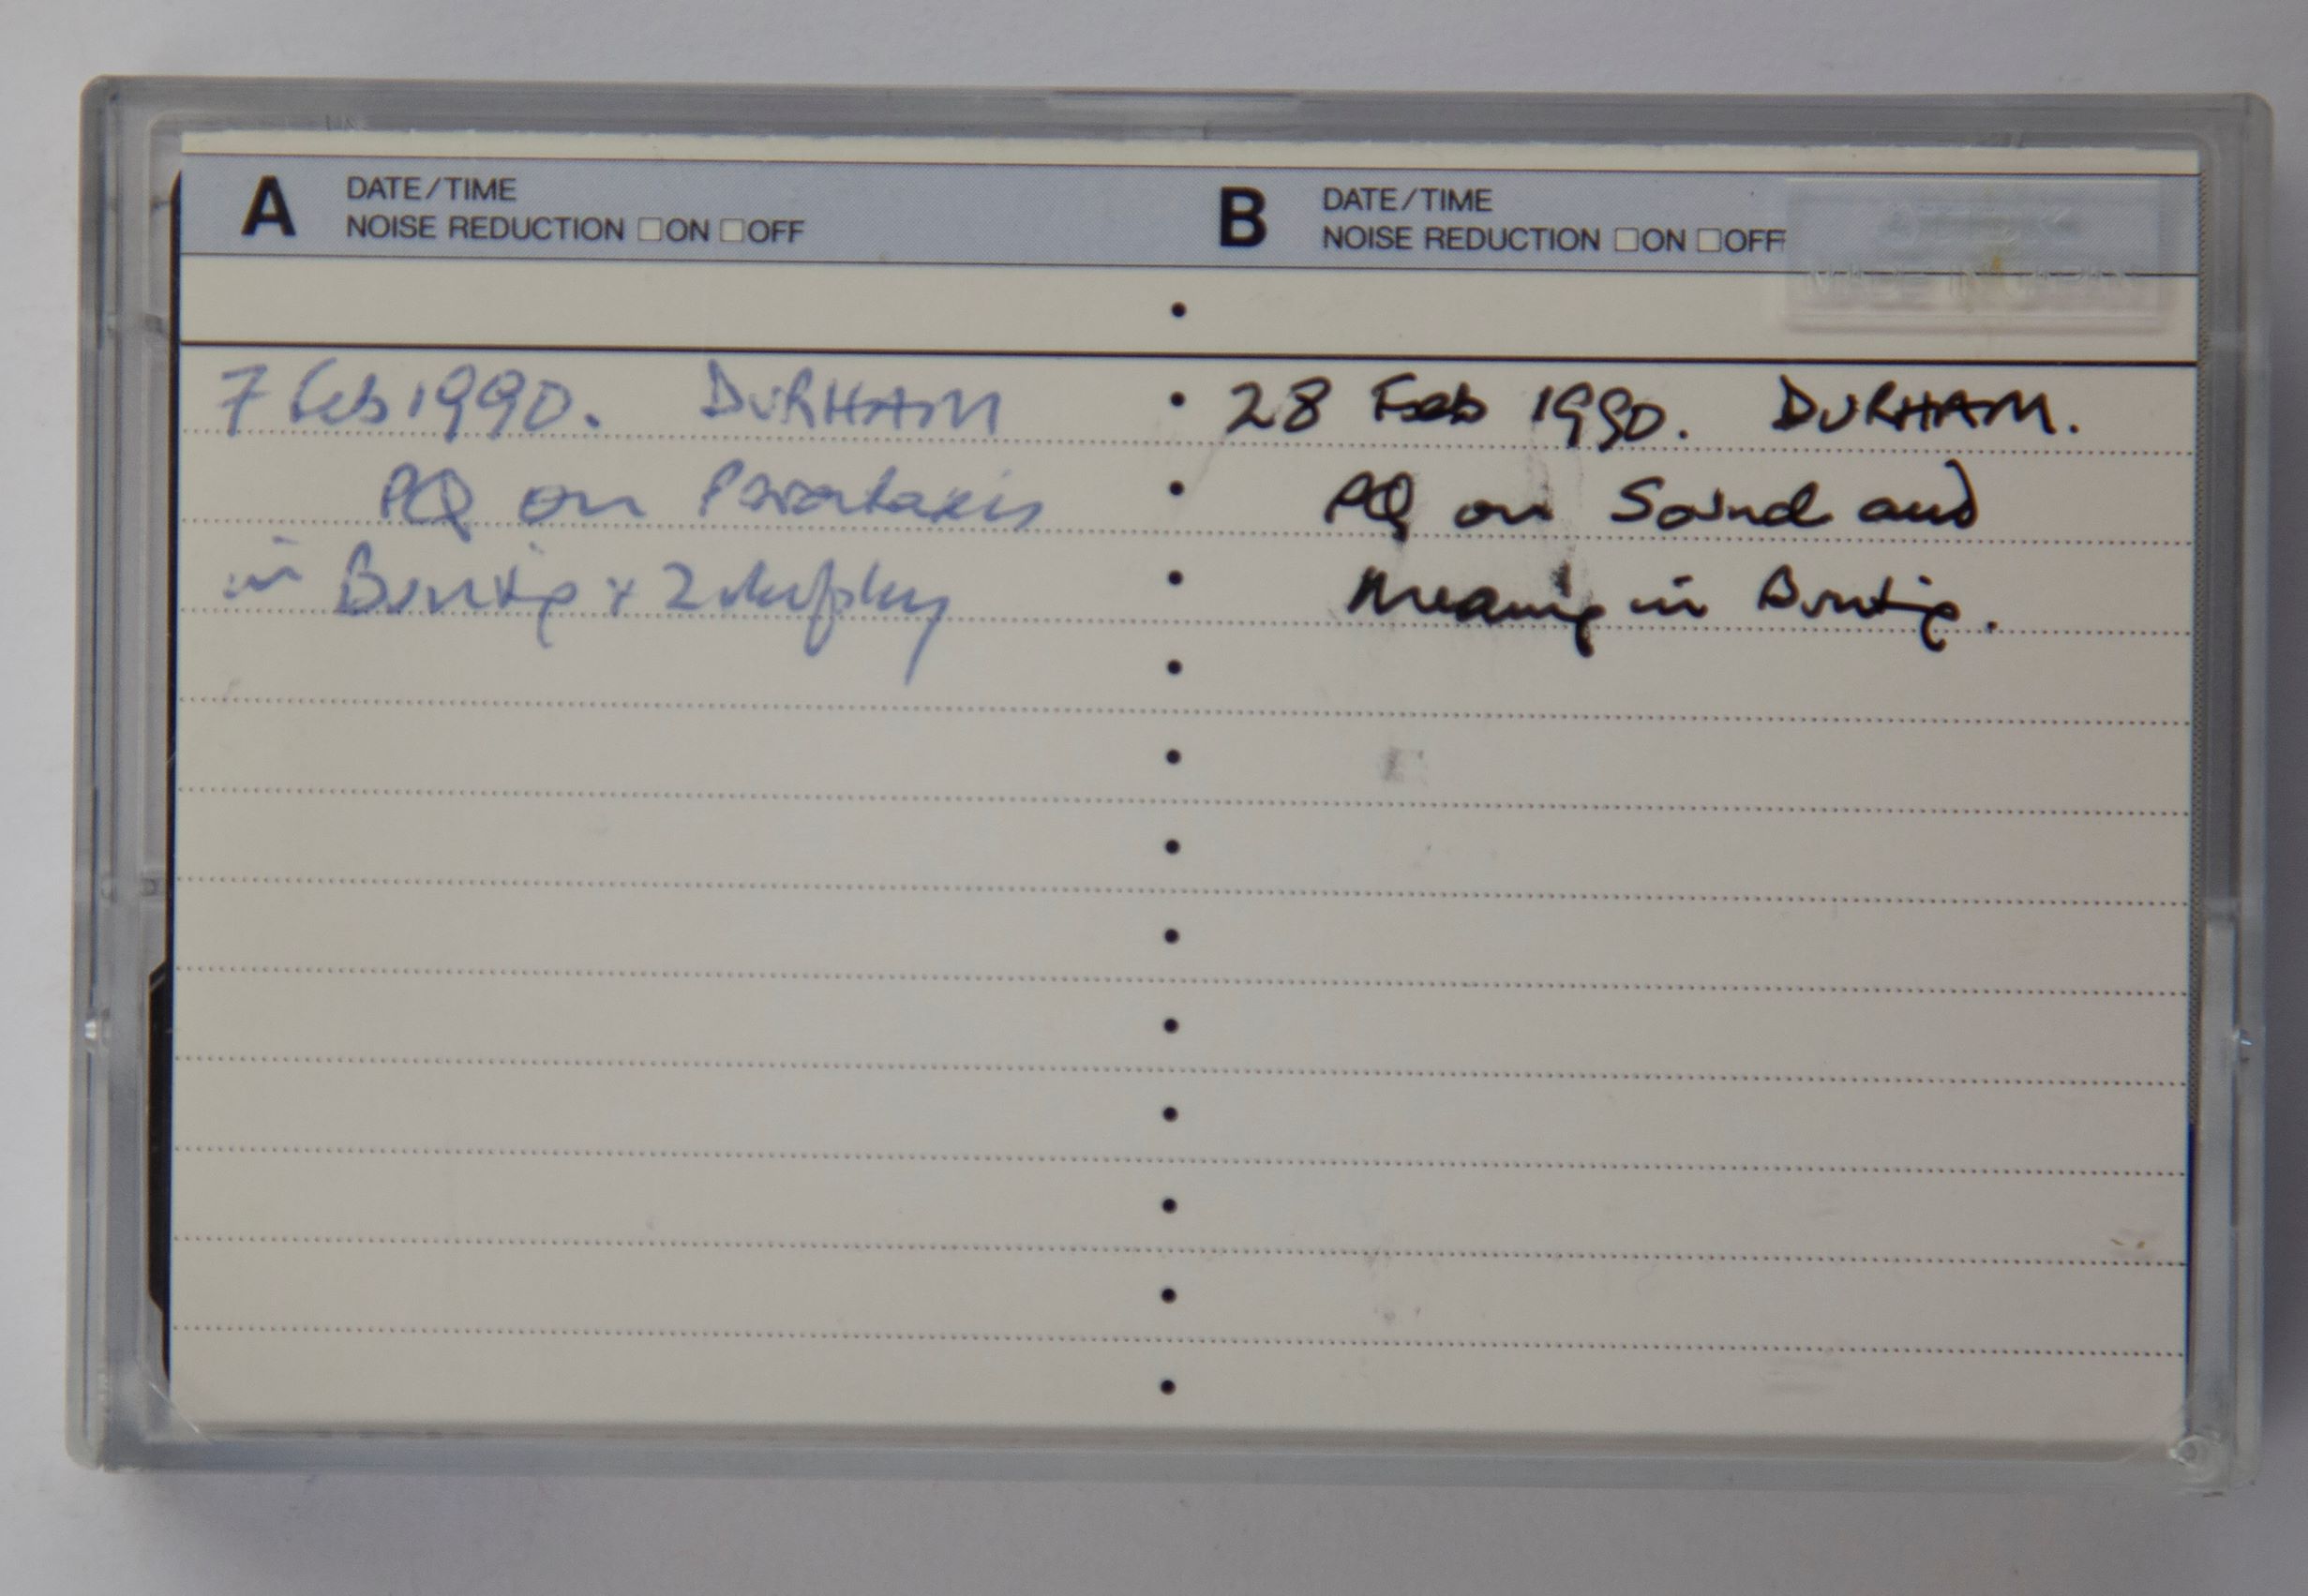 A DATE/TIME
NOISE REDUCTION □ON □OFF
7 Feb 1990. DURHAM
PQ on Parataxis
in Bunting + Zukofsky
B DATE/TIME
NOISE REDUCTION □ON □OFF
28 Feb 1990. DURHAM.
PQ on Sound and
Meaning in Bunting.